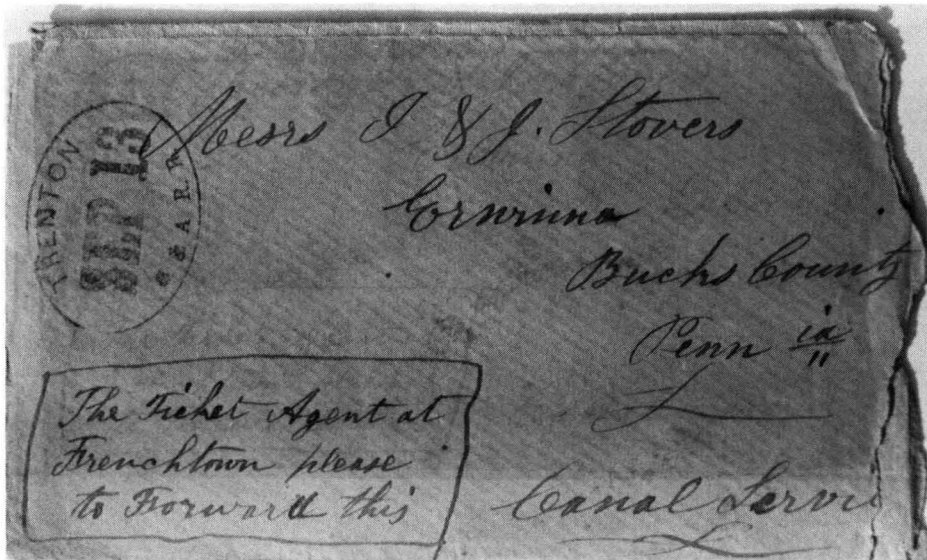 TRENTON
SEP 13
C & A R.R
Messrs I & J. Stovers
Erwinna
Bucks County
Penn ia
The Ticket Agent at
Frenchtown please
to Forward this
Canal Servi